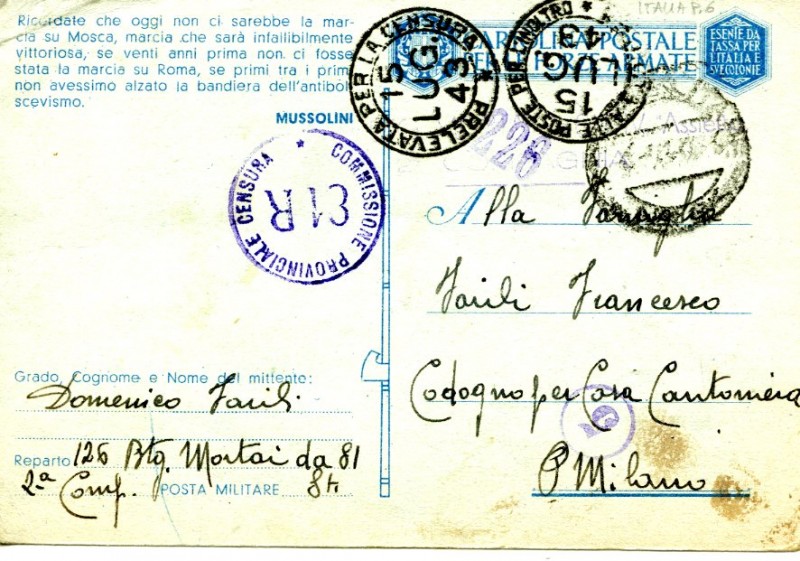 Ricordate che oggi non ci sarebbe la mar-
cia su Mosca, marcia che sarà infallibilmente
vittoriosa, se venti anni prima non ci fosse
stata la marcia su Roma, se primi tra i primi
non avessimo alzato la bandiera dell'antibol-
scevismo.
MUSSOLINI
ITALIA P.6
CARTOLINA POSTALE
PER LE FORZE ARMATE
ESENTE DA
TASSA PER
L'ITALIA E
SUE COLONIE
PRELEVATA PER LA CENSURA
15
LUG.
43
ALLE POSTE PER L'INOLTRO
15
LUG
43
226
Assietta
COMMISSIONE PROVINCIALE CENSURA
C1R
Alla Famiglia
Farili Francesco
Codogno per Casa Cantoniera
P Milano
Grado, Cognome e Nome del mittente:
Domenico Farili
Reparto 126 Btg. Mortai da 81
2a Comp. POSTA MILITARE